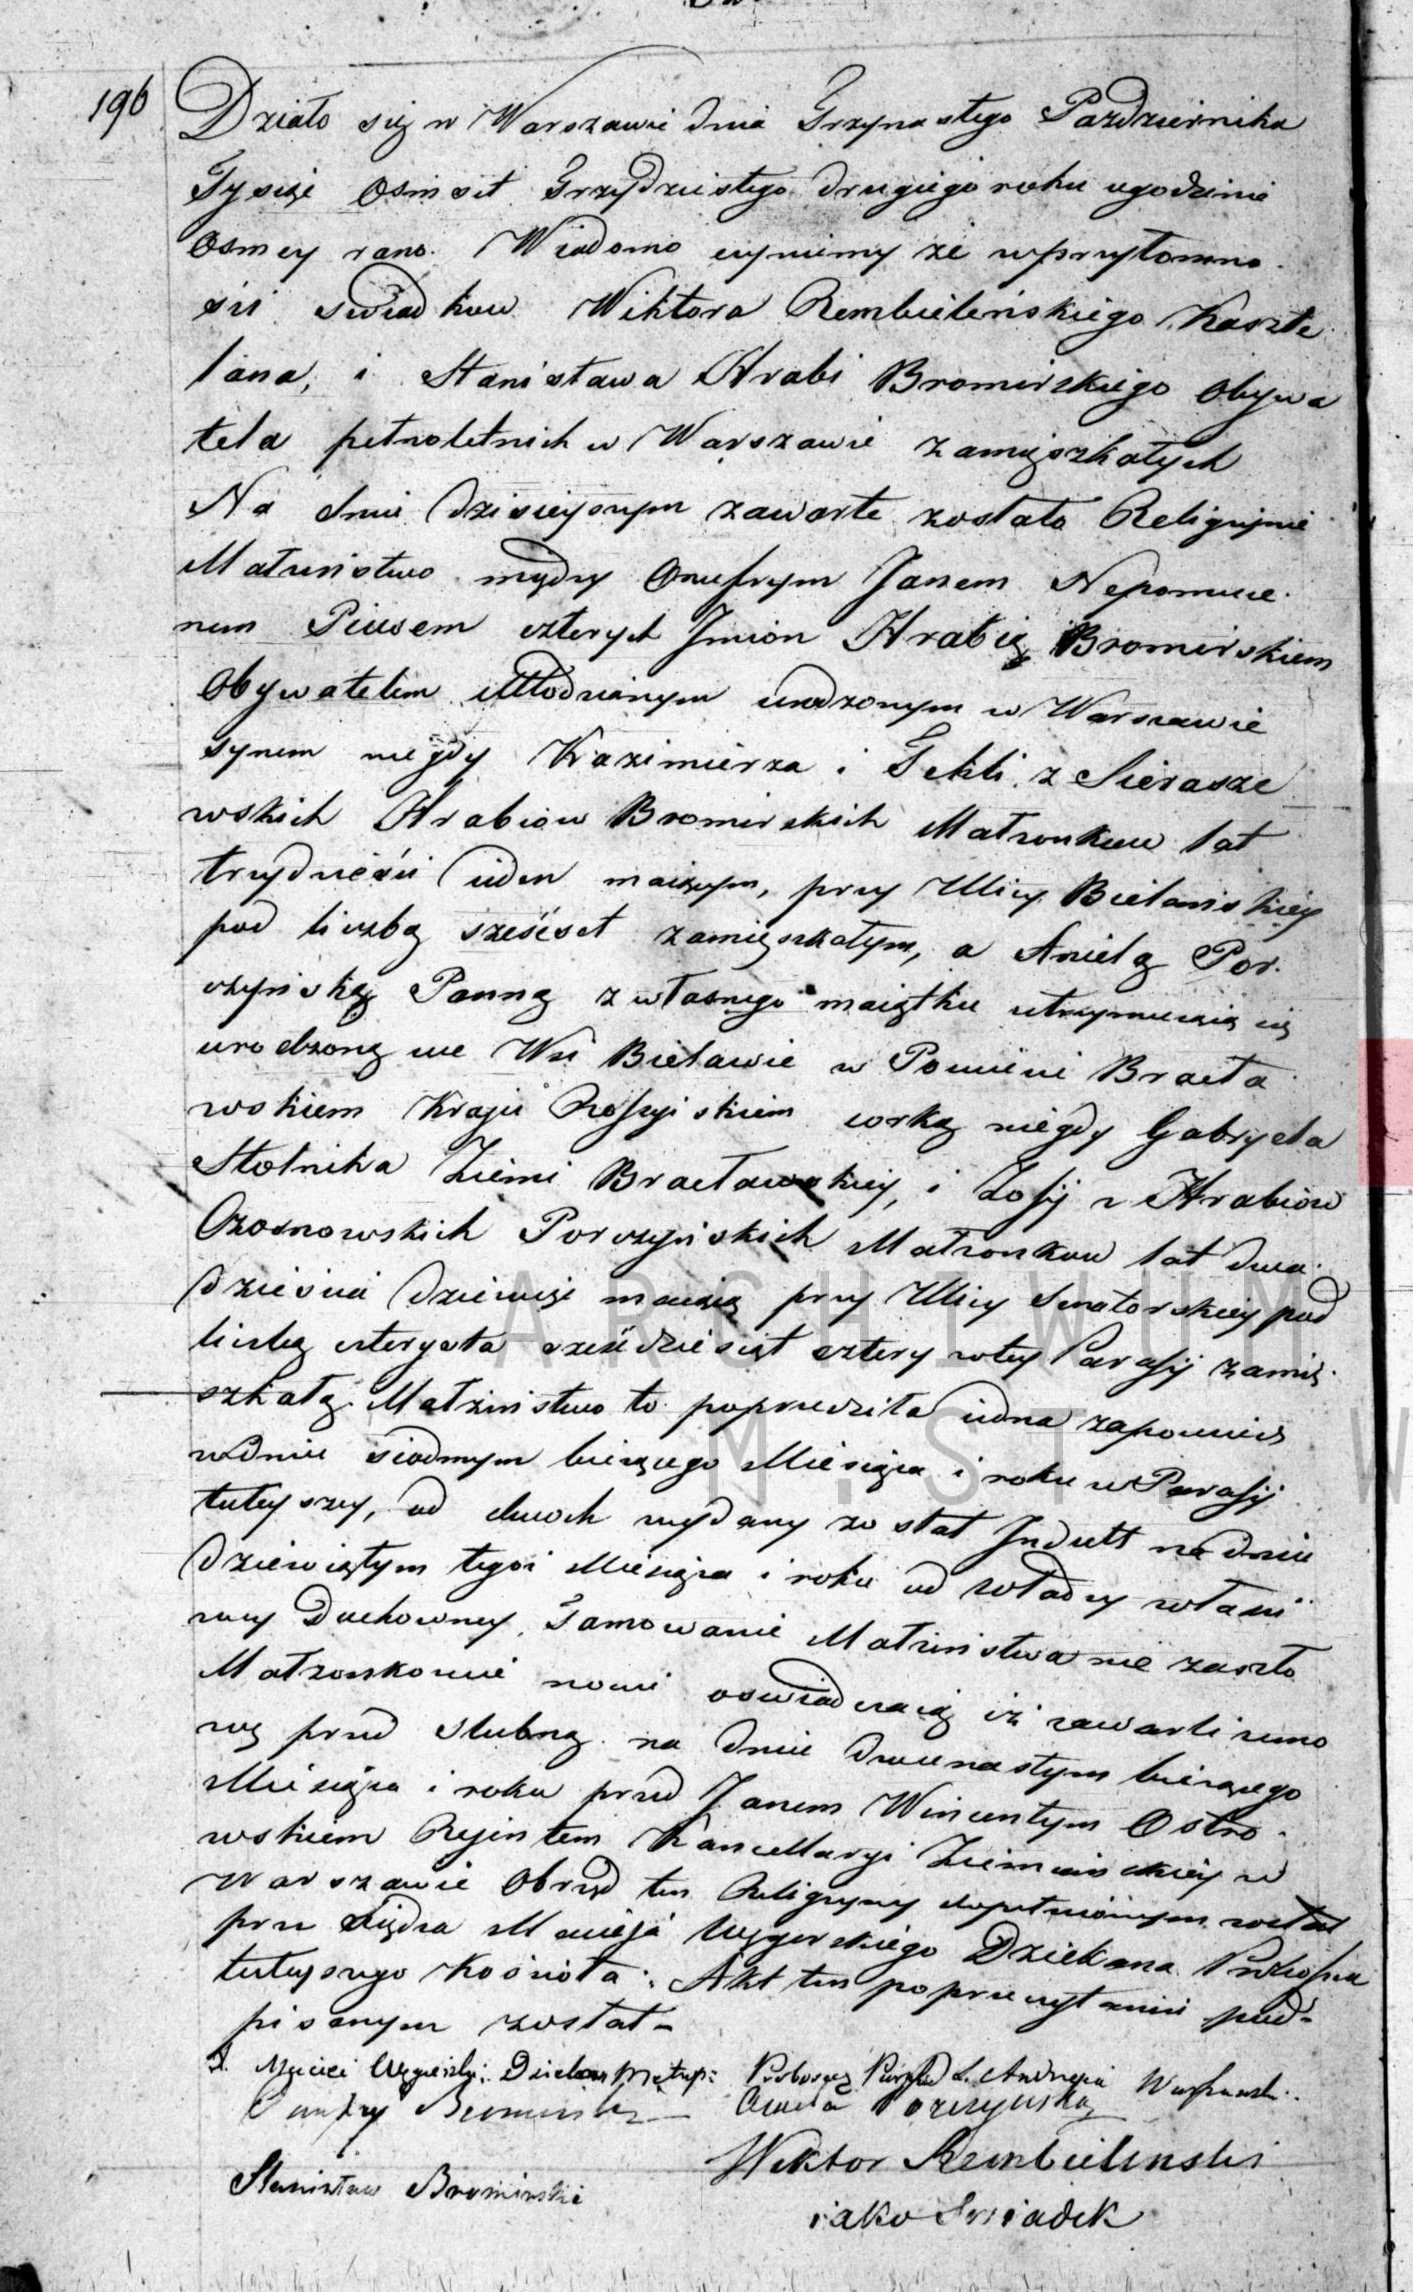 196
Działo się w Warszawie dnia Trzynastego Pazdziernika
Tysiąc Osmset Trzydziestego drugiego roku ugodzinie
Osmey rano. Wiadomo czynimy że wprzytomno
ści swiadkow Wiktora Rembielińskiego Kaszte
lana, i Stanisława Hrabi Bromirskiego Obywa
tela pełnoletnich w Warszawie zamięszkałych
Na dniu dzisieyszym zawarte zostało Religijnie
Małżeństwo między Onufrym Janem Nepomuce
nem Piusem czterych Jmion Hrabią Bromirskiem
Obywatelem Młodzianym urodzonym w Warszawie
synem niegdy Kazimierza i Tekli z Sierasze
wskich Hrabiow Bromirskich Małżonkow lat
trzydzieści ieden maiącym, przy Ulicy Bielanskiey
pod liczbą sześćset zamięszkałym, a Anielą Por
czyńską Panną z własnego maiątku utrzymuiącą się
urodzoną we Wsi Bielawie w Powiecie Bracła
wskiem Kraju Rossyiskiem corką niegdy Gabryela
Stolnika Ziemi Bracławskiey, i Zofij z Hrabiow
Ozosnowskich Porczyńskich Małżonkow lat dwa
dzieścia dziewięć maiącą przy Ulicy Senatorskiey pod
liczbą czterysta sześćdziesiąt cztery wtey Parafij zamię
szkałą. Małżeństwo to poprzedziła iedna zapowiedz
wdniu siodmym bieżącego Miesiąca i roku w Parafij
tuteyszey, od dwoch wydany został Jndult na dniu
dziewiątym tegoż Miesiąca i roku od Władzy właści
wey Duchowney. Tamowanie Małżeństwa nie zaszło
Małżonkowie nowi oswiadczaią iż zawarli umo
wę przed slubną na dniu dwunastym bieżącego
Miesiąca i roku przed Janem Wincentym Ostro
wskiem Rejentem Kancellaryi Ziemianskiey w
Warszawie Obrząd ten Religijny dopełnionym został
przez Xiędza Macieja Węgerskiego Dziekana Proboszcza
tuteyszego Kościoła. Akt ten po przeczytaniu pod
pisanym został
X. Maciei Węgierski Dziekan Metrop: Proboszcz Parafii S. Andrzeja Warszawsk:
Onufry Bromirski Aniela Porczyńska
Wiktor Rembielinski
Stanisław Bromirski
iako Swiadek
ARCHIWUM
M. ST. W